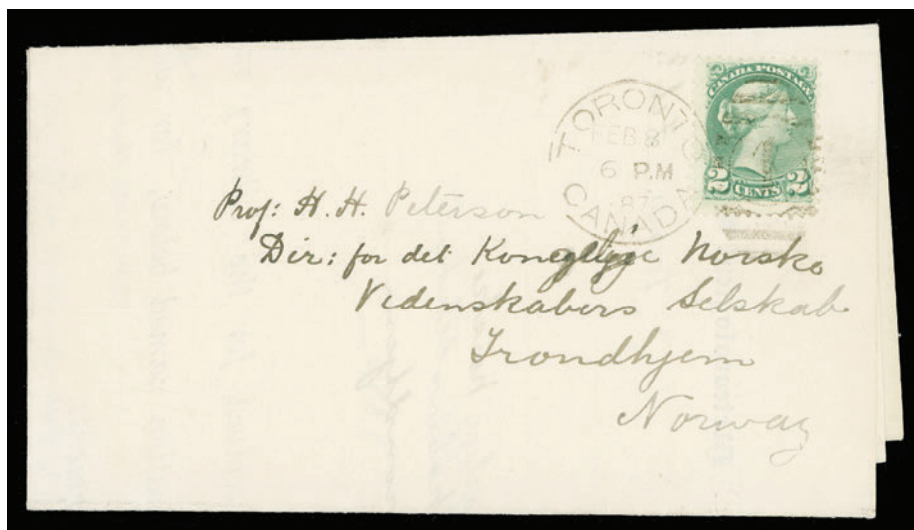 CANADA POSTAGE
2 CENTS 2
TORONTO
FEB 8
6 P.M
87
CANADA
Prof: H. H. Peterson
Dir: for det Konegelige Norske
Videnskabers Selskab
Trondhjem
Norway